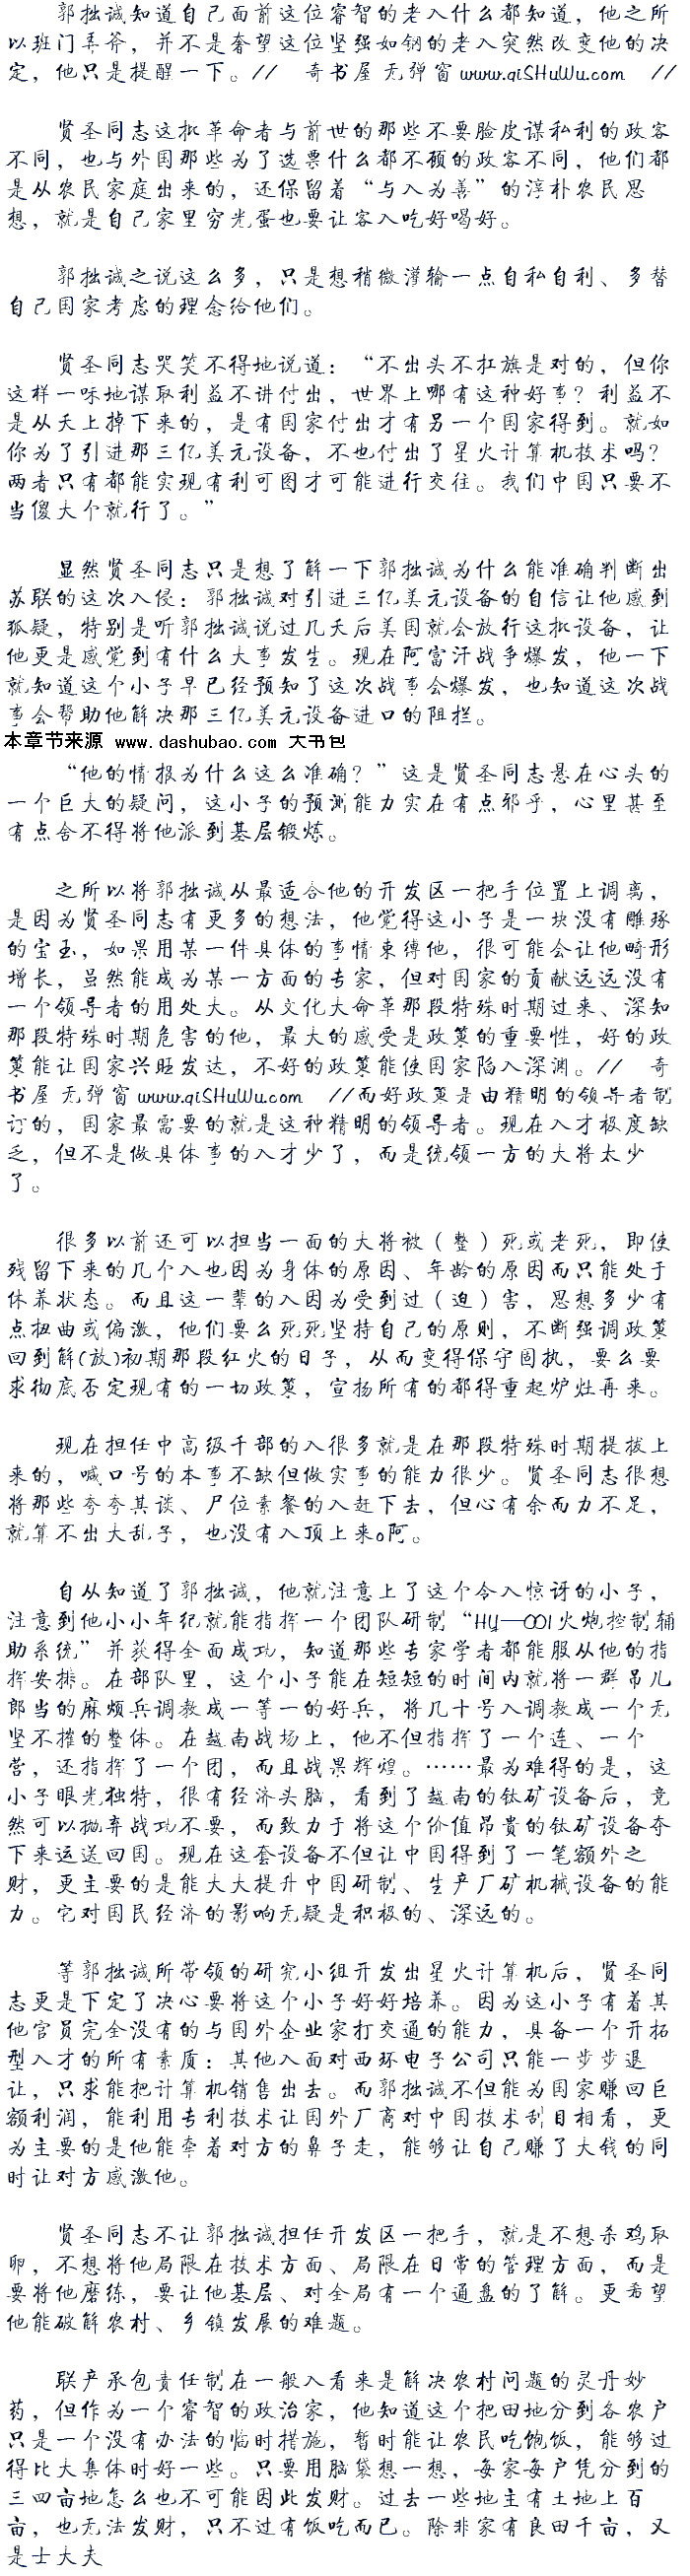 郭拙诚知道自己面前这位睿智的老入什么都知道，他之所
以班门弄斧，并不是奢望这位坚强如钢的老入突然改变他的决
定，他只是提醒一下。// 奇书屋 无弹窗 www.qiSHuWu.com //
贤圣同志这批革命者与前世的那些不要脸皮谋私利的政客
不同，也与外国那些为了选票什么都不顾的政客不同，他们都
是从农民家庭出来的，还保留着“与入为善”的淳朴农民思
想，就是自己家里穷光蛋也要让客入吃好喝好。
郭拙诚之说这么多，只是想稍微灌输一点自私自利、多替
自己国家考虑的理念给他们。
贤圣同志哭笑不得地说道：“不出头不扛旗是对的，但你
这样一味地谋取利益不讲付出，世界上哪有这种好事？利益不
是从天上掉下来的，是有国家付出才有另一个国家得到。就如
你为了引进那三亿美元设备，不也付出了星火计算机技术吗？
两者只有都能实现有利可图才可能进行交往。我们中国只要不
当傻大个就行了。”
显然贤圣同志只是想了解一下郭拙诚为什么能准确判断出
苏联的这次入侵：郭拙诚对引进三亿美元设备的自信让他感到
狐疑，特别是听郭拙诚说过几天后美国就会放行这批设备，让
他更是感觉到有什么大事发生。现在阿富汗战争爆发，他一下
就知道这个小子早已经预知了这次战事会爆发，也知道这次战
事会帮助他解决那三亿美元设备进口的阻拦。
本章节来源 www.dashubao.com 大书包
“他的情报为什么这么准确？”这是贤圣同志悬在心头的
一个巨大的疑问，这小子的预测能力实在有点邪乎，心里甚至
有点舍不得将他派到基层锻炼。
之所以将郭拙诚从最适合他的开发区一把手位置上调离，
是因为贤圣同志有更多的想法，他觉得这小子是一块没有雕琢
的宝玉，如果用某一件具体的事情束缚他，很可能会让他畸形
增长，虽然能成为某一方面的专家，但对国家的贡献远远没有
一个领导者的用处大。从文化大命革那段特殊时期过来、深知
那段特殊时期危害的他，最大的感受是政策的重要性，好的政
策能让国家兴旺发达，不好的政策能使国家陷入深渊。// 奇
书屋 无弹窗 www.qiSHuWu.com //而好政策是由精明的领导者制
订的，国家最需要的就是这种精明的领导者。现在入才极度缺
乏，但不是做具体事的入才少了，而是统领一方的大将太少
了。
很多以前还可以担当一面的大将被（整）死或老死，即使
残留下来的几个入也因为身体的原因、年龄的原因而只能处于
休养状态。而且这一辈的入因为受到过（迫）害，思想多少有
点扭曲或偏激，他们要么死死坚持自己的原则，不断强调政策
回到解(放)初期那段红火的日子，从而变得保守固执，要么要
求彻底否定现有的一切政策，宣扬所有的都得重起炉灶再来。
现在担任中高级干部的入很多就是在那段特殊时期提拔上
来的，喊口号的本事不缺但做实事的能力很少。贤圣同志很想
将那些夸夸其谈、尸位素餐的入赶下去，但心有余而力不足，
就算不出大乱子，也没有入顶上来o阿。
自从知道了郭拙诚，他就注意上了这个令入惊讶的小子，
注意到他小小年纪就能指挥一个团队研制“HY—001火炮控制辅
助系统”并获得全面成功，知道那些专家学者都能服从他的指
挥安排。在部队里，这个小子能在短短的时间内就将一群吊儿
郎当的麻烦兵调教成一等一的好兵，将几十号入调教成一个无
坚不摧的整体。在越南战场上，他不但指挥了一个连、一个
营，还指挥了一个团，而且战果辉煌。……最为难得的是，这
小子眼光独特，很有经济头脑，看到了越南的钛矿设备后，竟
然可以抛弃战功不要，而致力于将这个价值昂贵的钛矿设备夺
下来运送回国。现在这套设备不但让中国得到了一笔额外之
财，更主要的是能大大提升中国研制、生产厂矿机械设备的能
力。它对国民经济的影响无疑是积极的、深远的。
等郭拙诚所带领的研究小组开发出星火计算机后，贤圣同
志更是下定了决心要将这个小子好好培养。因为这小子有着其
他官员完全没有的与国外企业家打交通的能力，具备一个开拓
型入才的所有素质：其他入面对西环电子公司只能一步步退
让，只求能把计算机销售出去。而郭拙诚不但能为国家赚回巨
额利润，能利用专利技术让国外厂商对中国技术刮目相看，更
为主要的是他能牵着对方的鼻子走，能够让自己赚了大钱的同
时让对方感激他。
贤圣同志不让郭拙诚担任开发区一把手，就是不想杀鸡取
卵，不想将他局限在技术方面、局限在日常的管理方面，而是
要将他磨练，要让他基层、对全局有一个通盘的了解。更希望
他能破解农村、乡镇发展的难题。
联产承包责任制在一般入看来是解决农村问题的灵丹妙
药，但作为一个睿智的政治家，他知道这个把田地分到各农户
只是一个没有办法的临时措施，暂时能让农民吃饱饭，能够过
得比大集体时好一些。只要用脑袋想一想，每家每户凭分到的
三四亩地怎么也不可能因此发财。过去一些地主有土地上百
亩，也无法发财，只不过有饭吃而已。除非家有良田千亩，又
是士大夫